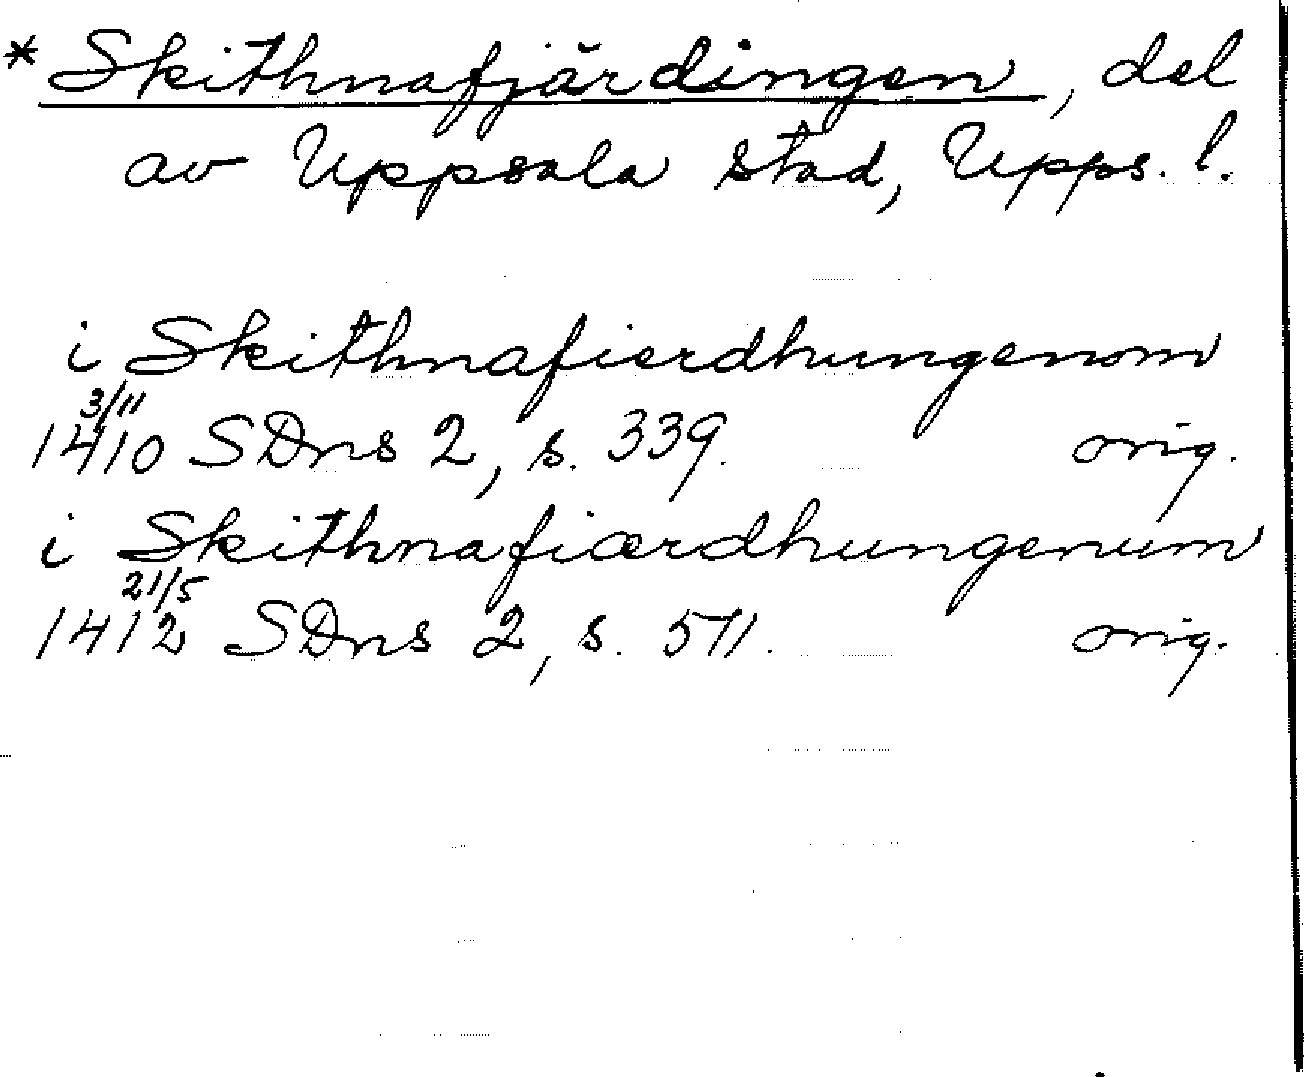 * Skithnafjärdingen, del
av Uppsala stad, Upps. l.
i Skithnafierdhungenom
3/11
1410 SDns 2, s. 339. orig.
i Skithnafiærdhungenum
21/5
1412 SDns 2, s. 511. orig.